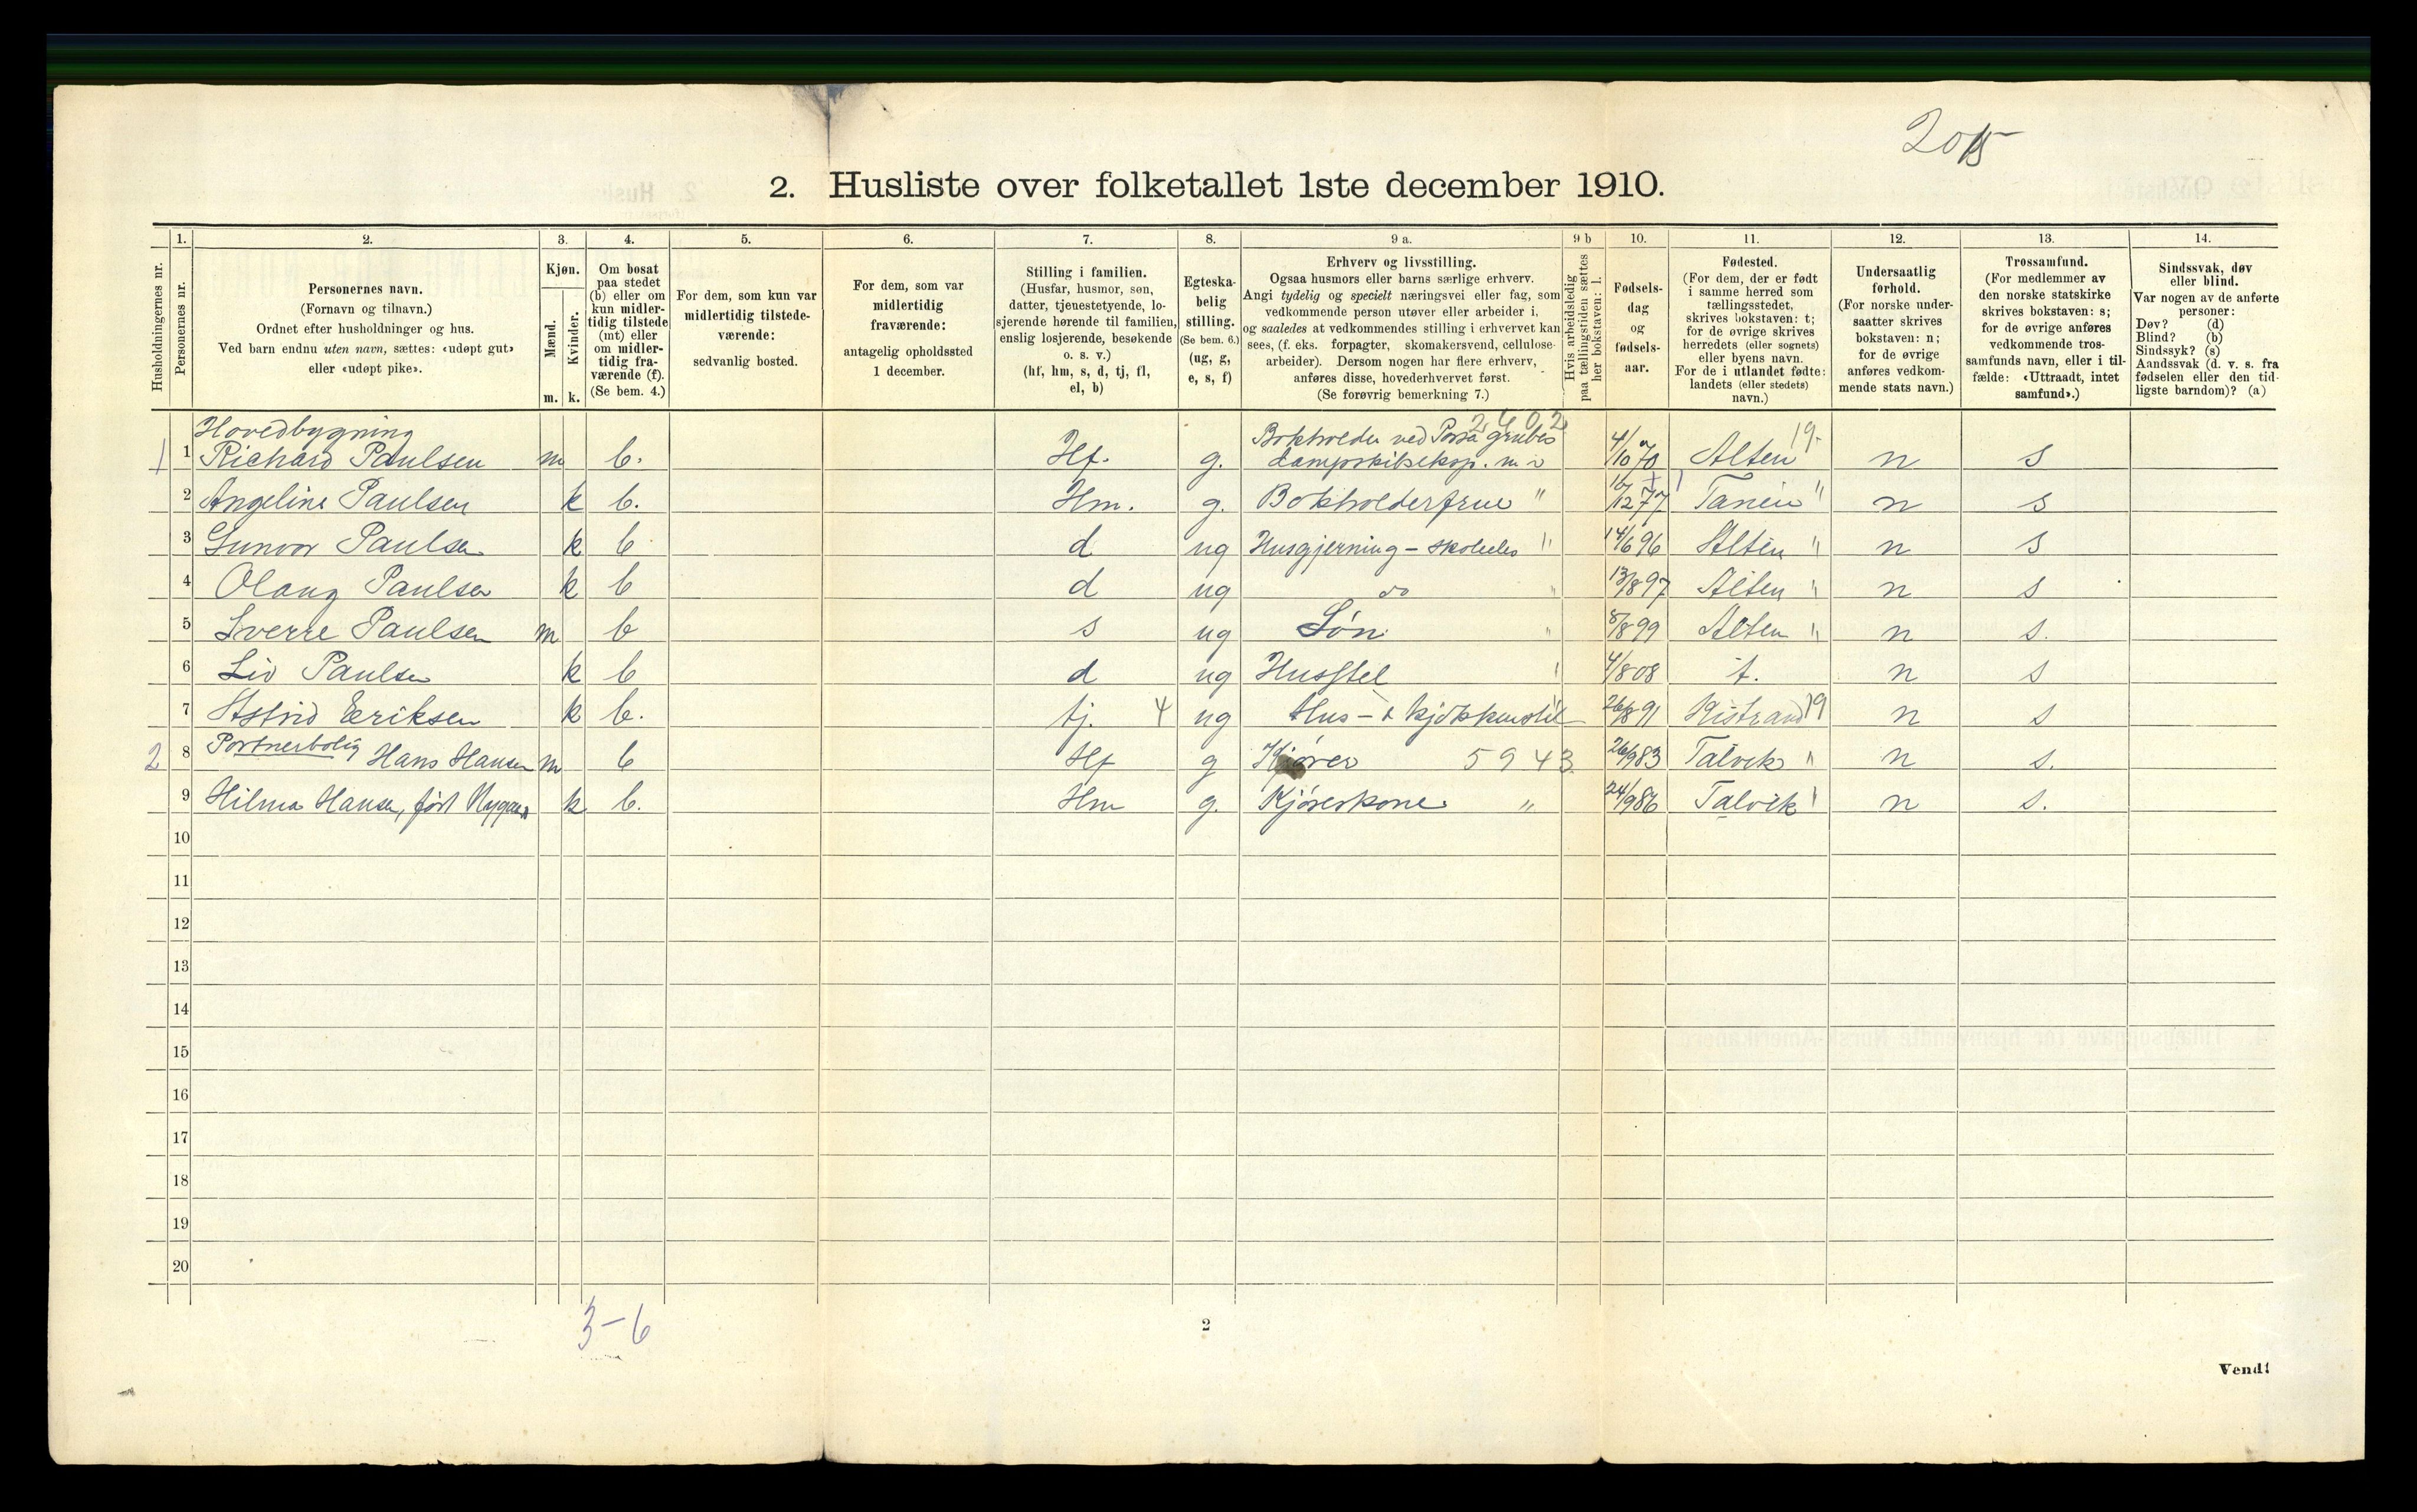 2015
2. Husliste over folketallet 1ste december 1910.
Husholdningernes nr.
1. Personernes nr.
2. Personernes navn.
(Fornavn og tilnavn.)
Ordnet efter husholdninger og hus.
Ved barn endnu uten navn, sættes: «udøpt gut»
eller «udøpt pike».
3. Kjøn.
Mænd. m.
Kvinder. k.
4. Om bosat
paa stedet
(b) eller om
kun midler-
tidig tilstede
(mt) eller
om midler-
tidig fra-
værende (f).
(Se bem. 4.)
5. For dem, som kun var
midlertidig tilstede-
værende:
sedvanlig bosted.
6. For dem, som var
midlertidig
fraværende:
antagelig opholdssted
1 december.
7. Stilling i familien.
(Husfar, husmor, søn,
datter, tjenestetyende, lo-
sjerende hørende til familien,
enslig losjerende, besøkende
o. s. v.)
(hf, hm, s, d, tj, fl,
el, b)
8. Egteska-
belig
stilling.
(Se bem. 6.)
(ug, g,
e, s, f)
9 a. Erhverv og livsstilling.
Ogsaa husmors eller barns særlige erhverv.
Angi tydelig og specielt næringsvei eller fag, som
vedkommende person utøver eller arbeider i,
og saaledes at vedkommendes stilling i erhvervet kan
sees, (f. eks. forpagter, skomakersvend, cellulose-
arbeider). Dersom nogen har flere erhverv,
anføres disse, hovederhvervet først.
(Se forøvrig bemerkning 7.)
9 b Hvis arbeidsledig
paa tællingstiden sættes
her bokstaven: l.
10. Fødsels-
dag
og
fødsels-
aar.
11. Fødested.
(For dem, der er født
i samme herred som
tællingsstedet,
skrives bokstaven: t;
for de øvrige skrives
herredets (eller sognets)
eller byens navn.
For de i utlandet fødte:
landets (eller stedets)
navn.)
12. Undersaatlig
forhold.
(For norske under-
saatter skrives
bokstaven: n;
for de øvrige
anføres vedkom-
mende stats navn.)
13. Trossamfund.
(For medlemmer av
den norske statskirke
skrives bokstaven: s;
for de øvrige anføres
vedkommende tros-
samfunds navn, eller i til-
fælde: «Uttraadt, intet
samfund».)
14. Sindssvak, døv
eller blind.
Var nogen av de anførte
personer:
Døv? (d)
Blind? (b)
Sindssyk? (s)
Aandssvak (d. v. s. fra
fødselen eller den tid-
ligste barndom)? (a)
Hovedbygning Bokholder ved Porsa grubes 2402
1 1 Richard Paulsen m b. Hf. g. Dampskibseksp. m 4/10 70 Alten 19. n s
2 Angeline Paulsen k b. Hm. g. Bokholderfrue " /12 77 Tanen " n s
3 Gunvor Paulsen k b d ug Husgjerning - skoleelev " 14/6 96 Alten " n s
4 Olaug Paulsen k b d ug do " 13/8 97 Alten " n s
5 Sverre Paulsen m b s ug Søn " 8/8 99 Alten " n s.
6 Liv Paulsen k b d ug Husstel " 4/8 08 t. n s
7 Astrid Eriksen k b. tj. 4 ug Hus- & kjøkkenstel 26/8 91 Kistrand 19 n s
2 8 Portnerbolig Hans Hansen m b Hf g Kjører 5943 26/9 83 Talvik " n s.
9 Hilma Hansen, født k b. Hm g. Kjørerkone " 24/9 86 Talvik " n s.
10
11
12
13
14
15
16
17
18
19
20
3-6
2
Vend!